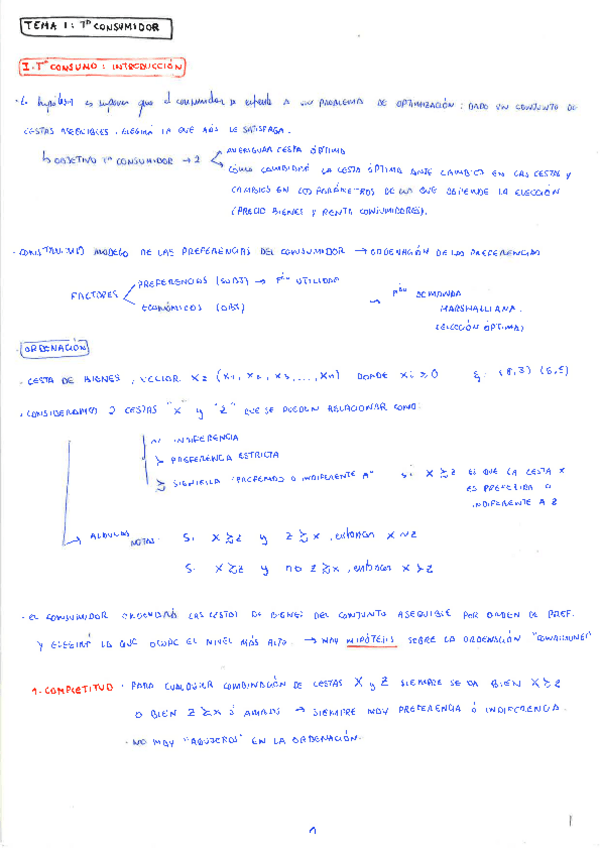 TEMA 1: Tª CONSUMIDOR
I. Tª CONSUMO: INTRODUCCIÓN
· La hipótesis es suponer que el consumidor se enfrenta a un PROBLEMA DE OPTIMIZACIÓN: DADO UN CONJUNTO DE
CESTAS ASEQUIBLES, ELEGIRÁ LA QUE MÁS LE SATISFAGA.
↳ OBJETIVO Tª CONSUMIDOR → 2
AVERIGUAR CESTA ÓPTIMA
CÓMO CAMBIARÁ LA CESTA ÓPTIMA ANTE CAMBIOS EN LAS CESTAS Y
CAMBIOS EN LOS PARÁMETROS DE LOS QUE DEPENDE LA ELECCIÓN
(PRECIO BIENES Y RENTA CONSUMIDORES).
· CONSTRUIMOS MODELO DE LAS PREFERENCIAS DEL CONSUMIDOR → ORDENACIÓN DE LAS PREFERENCIAS
FACTORES
PREFERENCIAS (SUBJ) → Fᶜⁱóⁿ UTILIDAD
ECONÓMICOS (OBJ)
→ Fᶜⁱóⁿ DEMANDA
MARSHALLIANA.
(ELECCIÓN ÓPTIMA)
ORDENACIÓN
· CESTA DE BIENES, VECTOR X = (X1, X2, X3, ..., Xn) DONDE Xi ≥ 0 Ej: (8,3) (5,5)
· CONSIDERAMOS 2 CESTAS "X" Y "Z" QUE SE PUEDEN RELACIONAR COMO:
~ INDIFERENCIA
≻ PREFERENCIA ESTRICTA
≿ SIGNIFICA "PREFERIDO O INDIFERENTE A" si X ≿ Z ES QUE LA CESTA X
ES PREFERIDA O
INDIFERENTE A Z
→ ALGUNAS NOTAS: Si X ≿ Z y Z ≿ X, entonces X ~ Z
Si X ≿ Z y no Z ≿ X, entonces X ≻ Z
· EL CONSUMIDOR ORDENARÁ LAS CESTAS DE BIENES DEL CONJUNTO ASEQUIBLE POR ORDEN DE PREF.
Y ELEGIRÁ LA QUE OCUPE EL NIVEL MÁS ALTO. → HAY HIPÓTESIS SOBRE LA ORDENACIÓN
1. COMPLETITUD · PARA CUALQUIER COMBINACIÓN DE CESTAS X y Z SIEMPRE SE DA BIEN X ≿ Z
O BIEN Z ≿ X Ó AMBAS → SIEMPRE HAY PREFERENCIA Ó INDIFERENCIA.
· NO HAY "AGUJEROS" EN LA ORDENACIÓN.
1